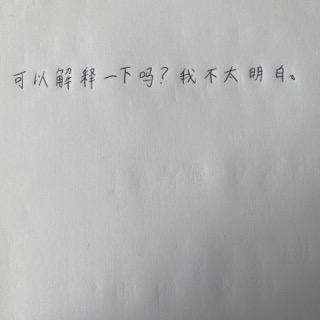 可以解释一下吗?我不太明白。